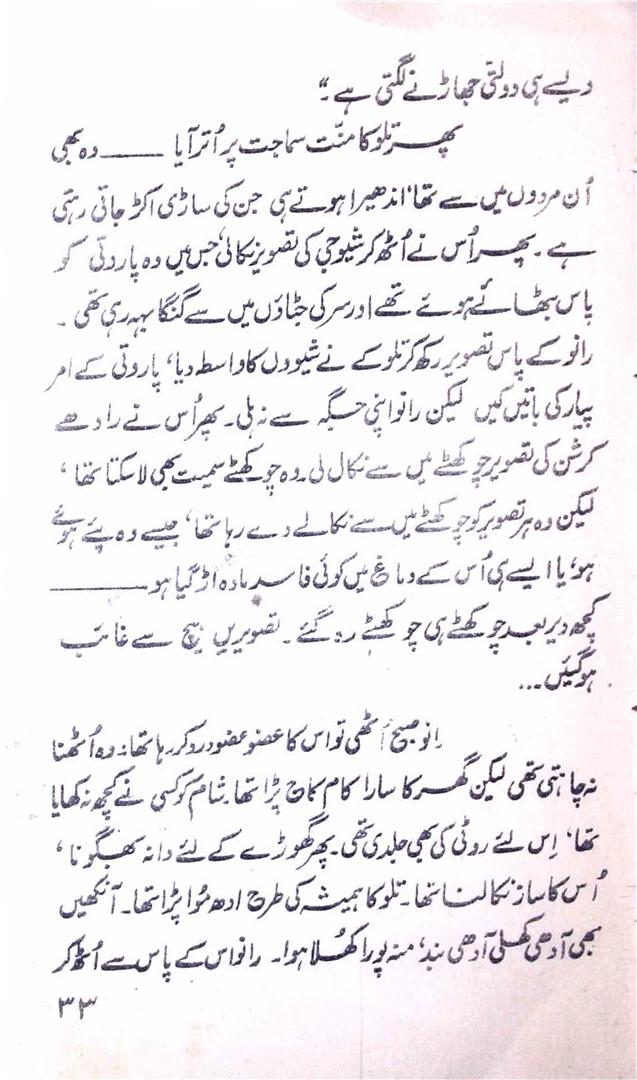 ویسے ہی دولتی جھاڑنے لگتی ہے۔“
پھر تلوکا منّت سماجت پر اُتر آیا —— وہ بھی
اُن مردوں میں سے تھا‘ اندھیرا ہوتے ہی جن کی ساڑی اکڑ جاتی رہتی
ہے۔ پھر اُس نے اُٹھ کر شیوجی کی تصویر نکالی‘ جس میں وہ پاروتی کو
پاس بٹھائے ہوئے تھے اور سر کی جٹاؤں میں سے گنگا بہہ رہی تھی۔
رانو کے پاس تصویر رکھ کر تلوکے نے شیوول کا واسطہ دیا‘ پاروتی کے امر
پیار کی باتیں کیں لیکن رانو اپنی جگہ سے نہ ہلی۔ پھر اُس نے رادھے
کرشن کی تصویر چوکھٹے میں سے نکال لی۔ وہ چوکھٹے سمیت بھی لا سکتا تھا‘
لیکن وہ ہر تصویر کو چوکھٹے میں سے نکالے دے رہا تھا‘ جیسے وہ پئے ہوئے
ہو‘ یا ایسے ہی اُس کے دماغ میں کوئی فاسد مادہ اڑ گیا ہو ——
کچھ دیر بعد چوکھٹے ہی چوکھٹے رہ گئے۔ تصویریں بیچ سے غائب
ہوگئیں...
رانو صبح اُٹھی تو اس کا عضو عضو درد کر رہا تھا۔ وہ اُٹھنا
نہ چاہتی تھی لیکن گھر کا سارا کام کاج پڑا تھا۔ شام کو کسی نے کچھ نہ کھایا
تھا‘ اِس لئے روٹی کی بھی جلدی تھی۔ پھر گھوڑے کے لئے دانہ بھگونا‘
اُس کا ساز نکالنا تھا۔ تلوکا ہمیشہ کی طرح ادھ مُوا پڑا تھا۔ آنکھیں
بھی آدھی کھلی آدھی بند‘ منہ پورا کھُلا ہوا۔ رانو اس کے پاس سے اُٹھ کر
۳۳